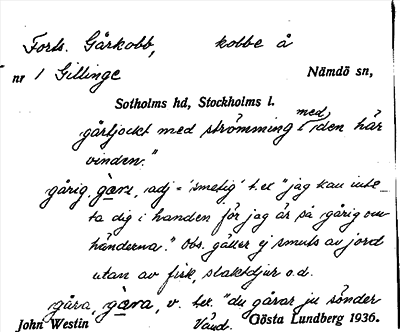 Forts. Gårkobb, kobbe å
nr 1 Gillinge Nämdö sn,
Sotholms hd, Stockholms l.
med
gårtjockt med strömming i den här
vinden."
gårig, adj = 'smetig' t.ex "jag kan inte
ta dig i handen för jag är så gårig om
händerna." Obs. gäller ej smuts av jord
utan av fisk, slaktdjur o.d.
gåra, gàra, v. t.ex. "du gårar ju sönder
John Westin Vänd. Gösta Lundberg 1936.